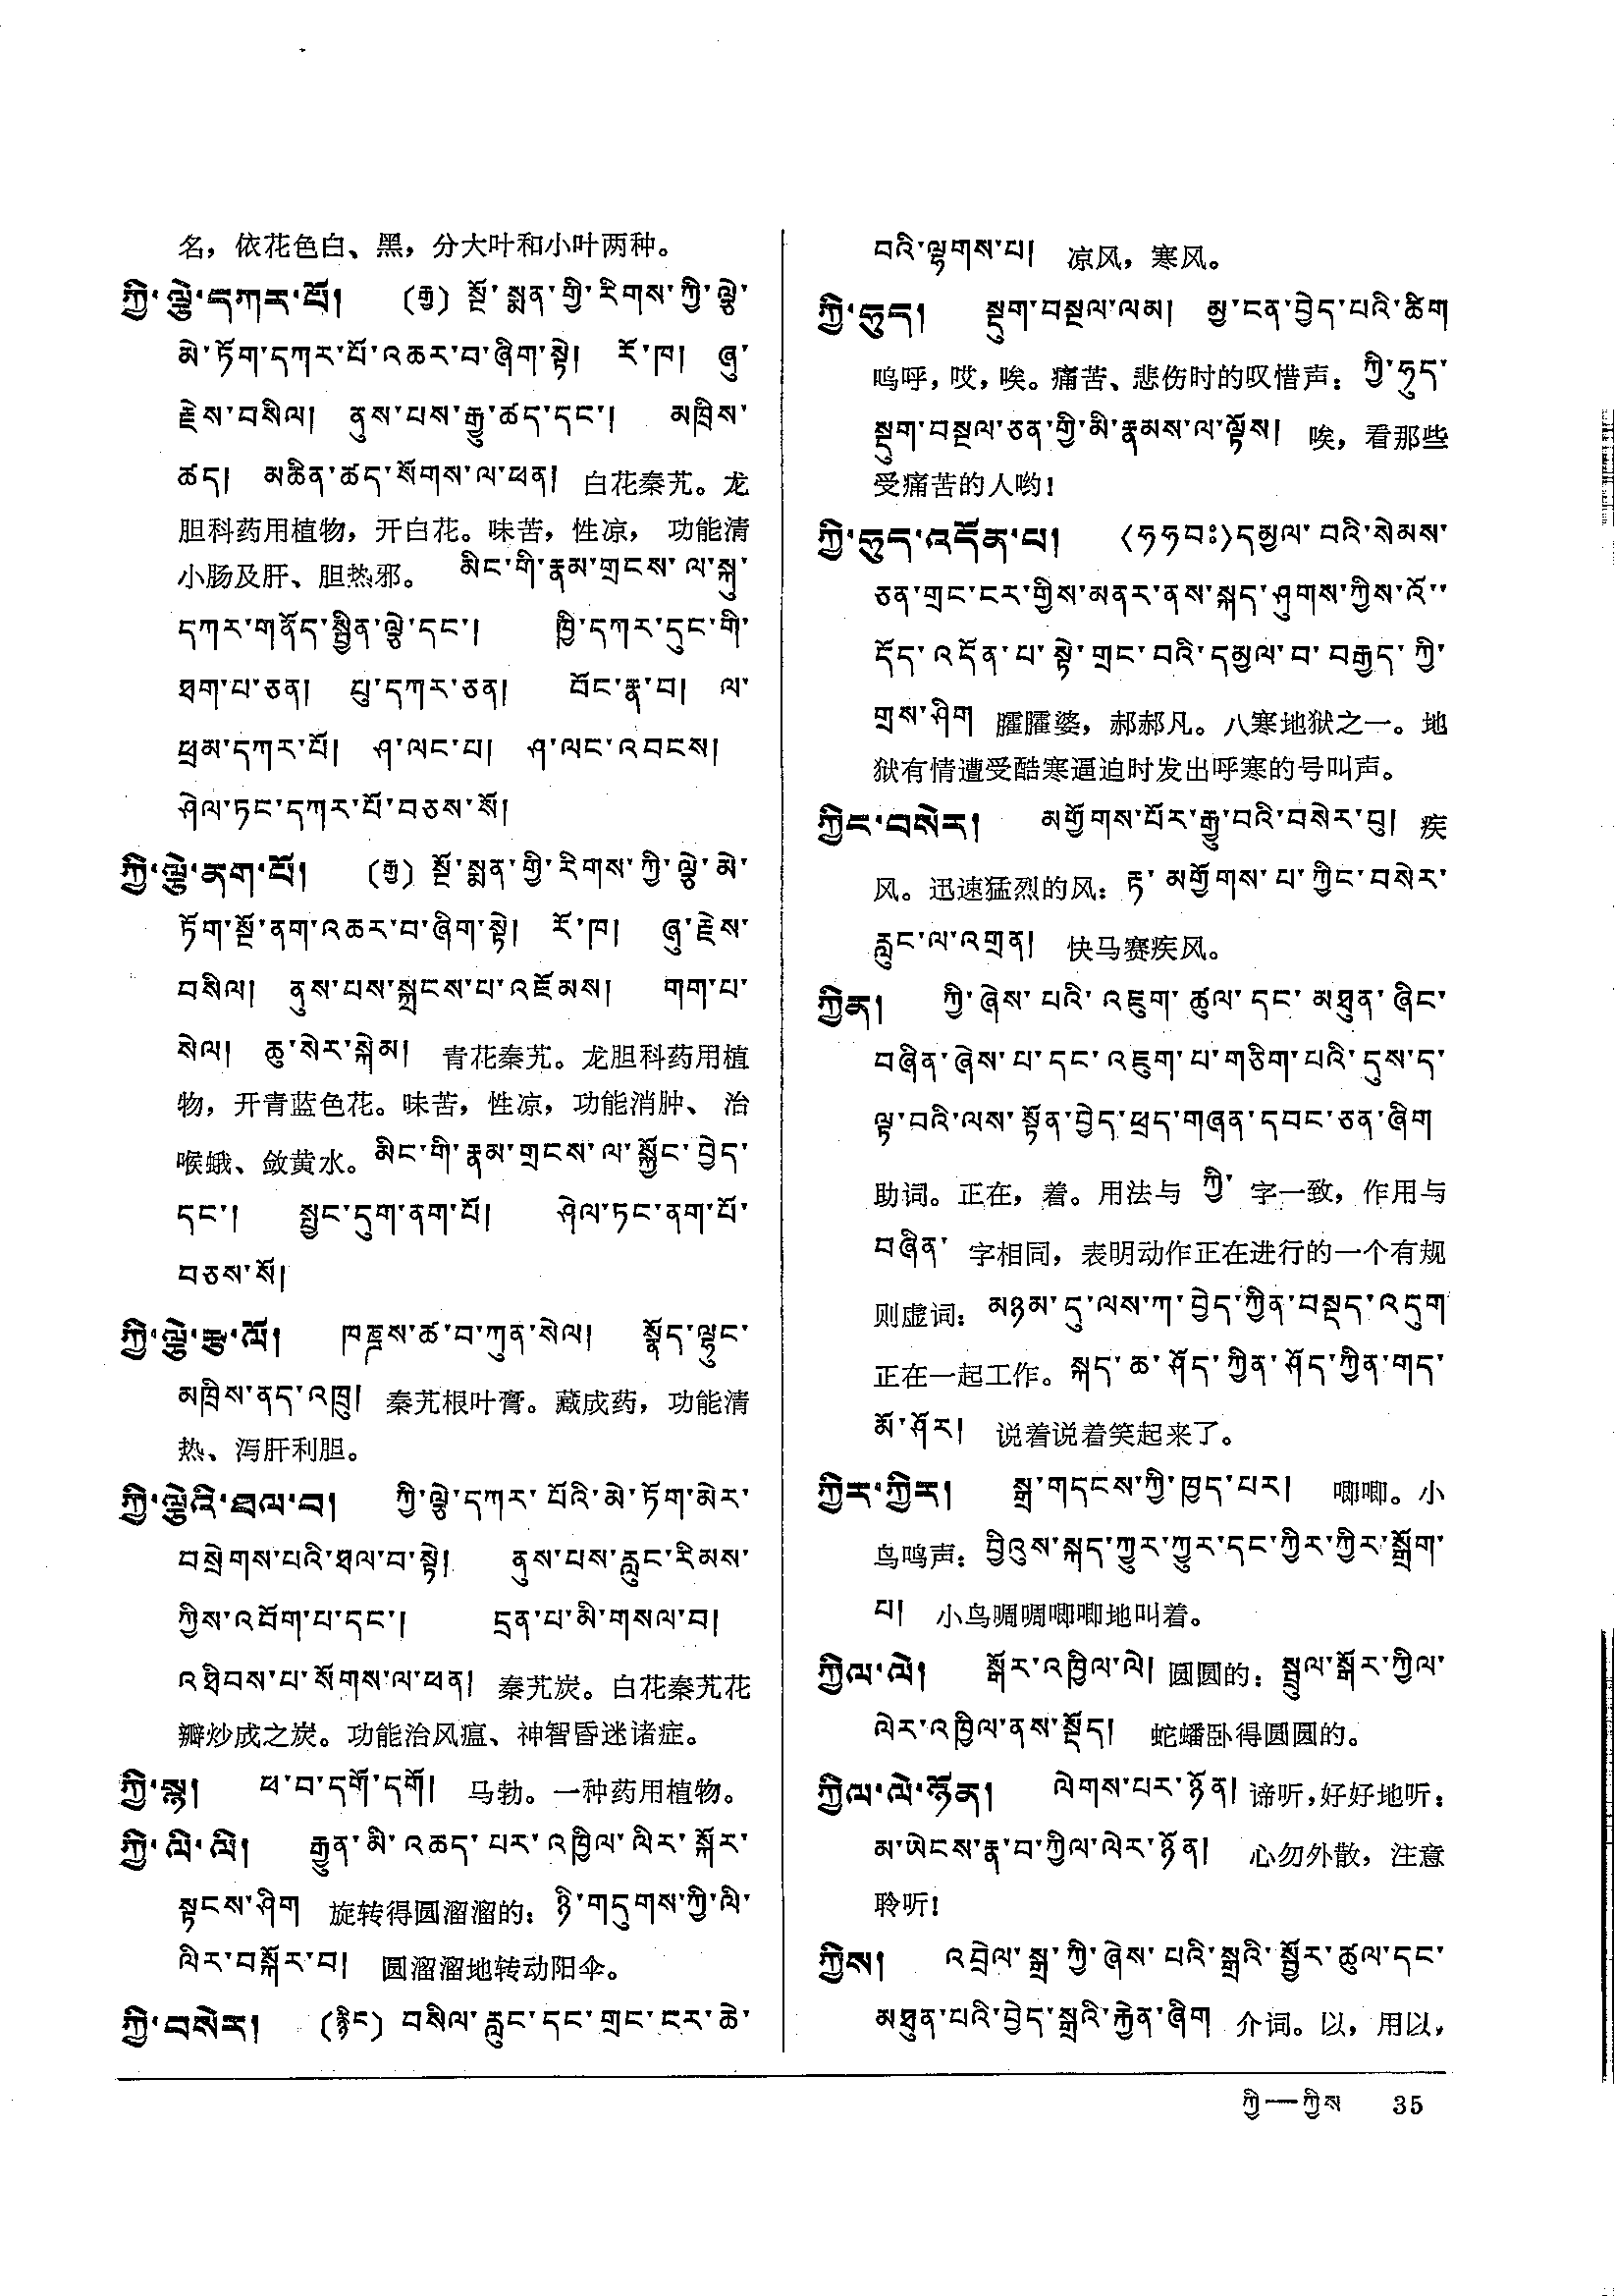 名，依花色白、黑，分大叶和小叶两种。
ཀྱི་ལྕེ་དཀར་པོ། (རྒྱ) སྔོ་སྨན་གྱི་རིགས་ཀྱི་ལྕེ་
མེ་ཏོག་དཀར་པོ་འཆར་བ་ཞིག་སྟེ། རོ་ཁ། ཞུ་
རྗེས་བསིལ། ནུས་པས་རྒྱུ་ཚད་དང་། མཁྲིས་
ཚད། མཆིན་ཚད་སོགས་ལ་ཕན། 白花秦艽。龙
胆科药用植物，开白花。味苦，性凉，功能清
小肠及肝、胆热邪。 མིང་གི་རྣམ་གྲངས་ལ་སྐུ་
དཀར་གནོད་སྦྱིན་ལྕེ་དང་། ཁྱི་དཀར་དུང་གི་
ཐག་པ་ཅན། པུ་དཀར་ཅན། བོང་རྣ་བ། ལ་
ཕྲམ་དཀར་པོ། ཤ་ལང་པ། ཤ་ལང་འབངས།
ཤེལ་ཏང་དཀར་པོ་བཅས་སོ།
ཀྱི་ལྕེ་ནག་པོ། (རྒྱ) སྔོ་སྨན་གྱི་རིགས་ཀྱི་ལྕེ་མེ་
ཏོག་སྔོ་ནག་འཆར་བ་ཞིག་སྟེ། རོ་ཁ། ཞུ་རྗེས་
བསིལ། ནུས་པས་སྐྲངས་པ་འཇོམས། གག་པ་
སེལ། ཆུ་སེར་སྐེམ། 青花秦艽。龙胆科药用植
物，开青蓝色花。味苦，性凉，功能消肿、治
喉蛾、敛黄水。 མིང་གི་རྣམ་གྲངས་ལ་སྐྱོང་བྱེད་
དང་། སྤྱང་དུག་ནག་པོ། ཤེལ་ཏང་ནག་པོ་
བཅས་སོ།
ཀྱི་ལྕེ་རྩ་ལོ། ཁཎྜས་ཚ་བ་ཀུན་སེལ། སྣོད་ལྷུང་
མཁྲིས་ནད་འཁྲུ། 秦艽根叶膏。藏成药，功能清
热、泻肝利胆。
ཀྱི་ལྕེའི་ཐལ་བ། ཀྱི་ལྕེ་དཀར་པོའི་མེ་ཏོག་མེར་
བསྲེགས་པའི་ཐལ་བ་སྟེ། ནུས་པས་རླུང་རིམས་
ཀྱིས་འབོག་པ་དང་། དྲན་པ་མི་གསལ་བ།
འཐིབས་པ་སོགས་ལ་ཕན། 秦艽炭。白花秦艽花
瓣炒成之炭。功能治风瘟、神智昏迷诸症。
ཀྱི་ལྷ། ཕ་བ་དགོ་དགོ། 马勃。一种药用植物。
ཀྱི་ལི་ལི། རྒྱུན་མི་འཆད་པར་འཁྱིལ་ལིར་སྐོར་
སྟངས་ཤིག 旋转得圆溜溜的： ཉི་གདུགས་ཀྱི་ལི་
ལིར་བསྐོར་བ། 圆溜溜地转动阳伞。
ཀྱི་བསེར། (རྙིང) བསིལ་རླུང་དང་གྲང་ངར་ཆེ་
བའི་ལྷགས་པ། 凉风，寒风。
ཀྱི་ཧུད། སྡུག་བསྔལ་ལམ། མྱ་ངན་བྱེད་པའི་ཚིག
呜呼，哎，唉。痛苦、悲伤时的叹惜声： ཀྱི་ཧུད་
སྡུག་བསྔལ་ཅན་གྱི་མི་རྣམས་ལ་ལྟོས། 唉，看那些
受痛苦的人哟！
ཀྱི་ཧུད་འདོན་པ། 〈ཧཧབཿ〉དམྱལ་བའི་སེམས་
ཅན་གྲང་ངར་གྱིས་མནར་ནས་སྐད་ཤུགས་ཀྱིས་འོ་
དོད་འདོན་པ་སྟེ་གྲང་བའི་དམྱལ་བ་བརྒྱད་ཀྱི་
གྲས་ཤིག 臛臛婆，郝郝凡。八寒地狱之一。地
狱有情遭受酷寒逼迫时发出呼寒的号叫声。
ཀྱིང་བསེར། མགྱོགས་པོར་རྒྱུ་བའི་བསེར་བུ། 疾
风。迅速猛烈的风： རྟ་མགྱོགས་པ་ཀྱིང་བསེར་
རླུང་ལ་འགྲན། 快马赛疾风。
ཀྱིན། ཀྱི་ཞེས་པའི་འཇུག་ཚུལ་དང་མཐུན་ཞིང་
བཞིན་ཞེས་པ་དང་འཇུག་པ་གཅིག་པའི་དུས་ད་
ལྟ་བའི་ལས་སྟོན་བྱེད་ཕྲད་གཞན་དབང་ཅན་ཞིག
助词。正在，着。用法与 ཀྱི་ 字一致，作用与
བཞིན་ 字相同，表明动作正在进行的一个有规
则虚词： མཉམ་དུ་ལས་ཀ་བྱེད་ཀྱིན་བསྡད་འདུག
正在一起工作。 སྐད་ཆ་ཤོད་ཀྱིན་ཤོད་ཀྱིན་གད་
མོ་ཤོར། 说着说着笑起来了。
ཀྱིར་ཀྱིར། སྒྲ་གདངས་ཀྱི་ཁྱད་པར། 唧唧。小
鸟鸣声： བྱིའུས་སྐད་ཀྱུར་ཀྱུར་དང་ཀྱིར་ཀྱིར་སྒྲོག་
པ། 小鸟啁啁唧唧地叫着。
ཀྱིལ་ལེ། སྒོར་འཁྱིལ་ལེ། 圆圆的： སྦྲུལ་སྒོར་ཀྱིལ་
ལེར་འཁྱིལ་ནས་སྡོད། 蛇蟠卧得圆圆的。
ཀྱིལ་ལེ་ཉོན། ལེགས་པར་ཉོན། 谛听，好好地听：
མ་ཡེངས་རྣ་བ་ཀྱིལ་ལེར་ཉོན། 心勿外散，注意
聆听！
ཀྱིས། འབྲེལ་སྒྲ་ཀྱི་ཞེས་པའི་སྒྲའི་སྦྱོར་ཚུལ་དང་
མཐུན་པའི་བྱེད་སྒྲའི་རྐྱེན་ཞིག 介词。以，用以，
ཀྱི—ཀྱིས 35